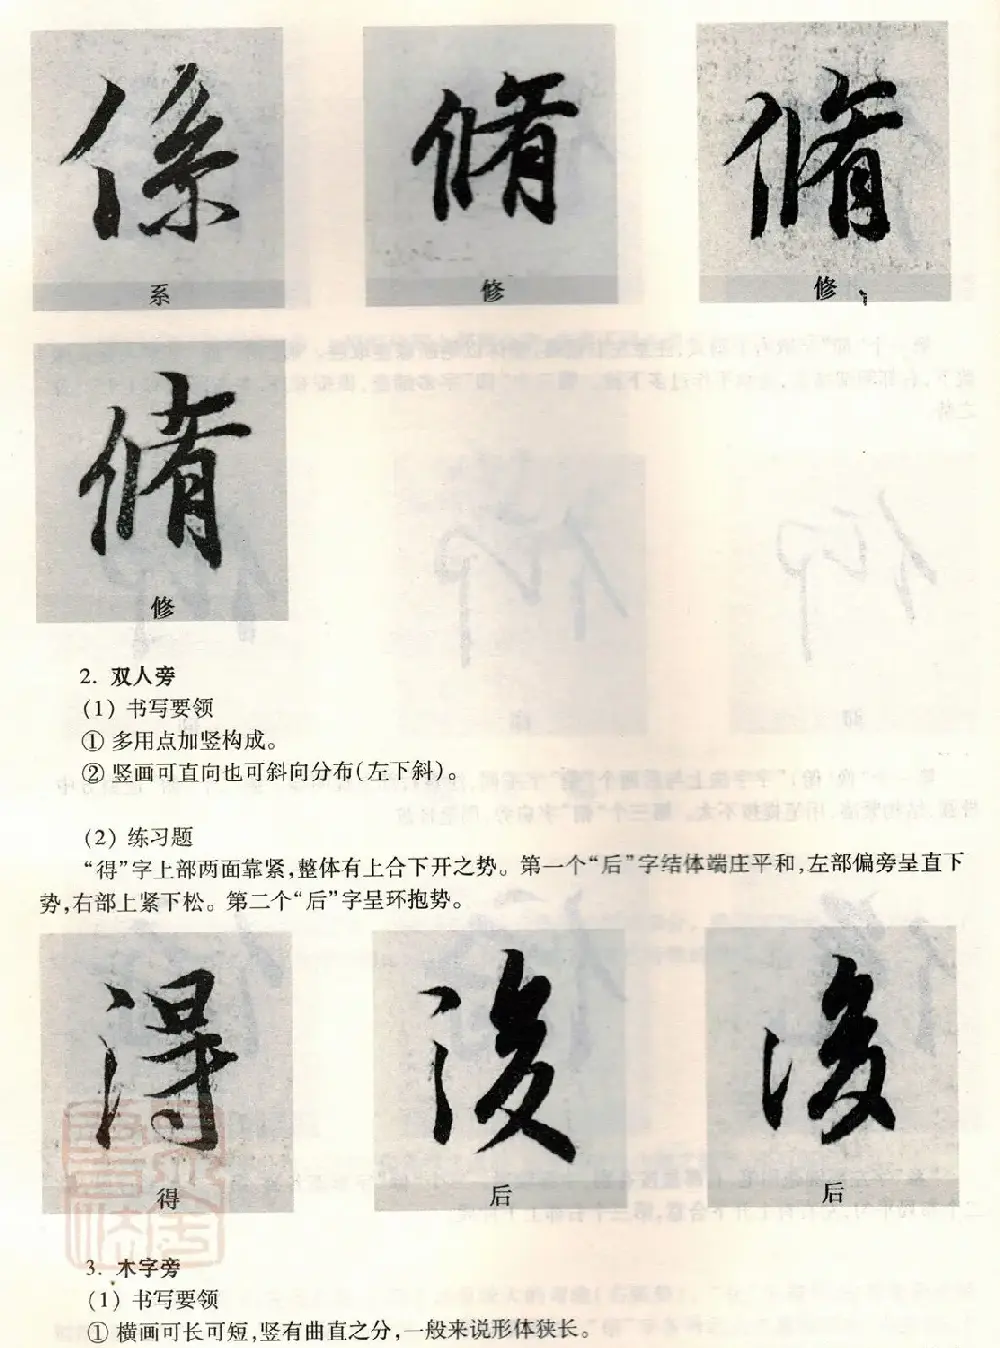 係 脩 脩
系 修 修
脩
修
2. 双人旁
(1) 书写要领
① 多用点加竖构成。
② 竖画可直向也可斜向分布(左下斜)。
(2) 练习题
“得”字上部两面靠紧,整体有上合下开之势。第一个“后”字结体端庄平和,左部偏旁呈直下
势,右部上紧下松。第二个“后”字呈环抱势。
得 後 後
得 后 后
3. 木字旁
(1) 书写要领
① 横画可长可短,竖有曲直之分,一般来说形体狭长。